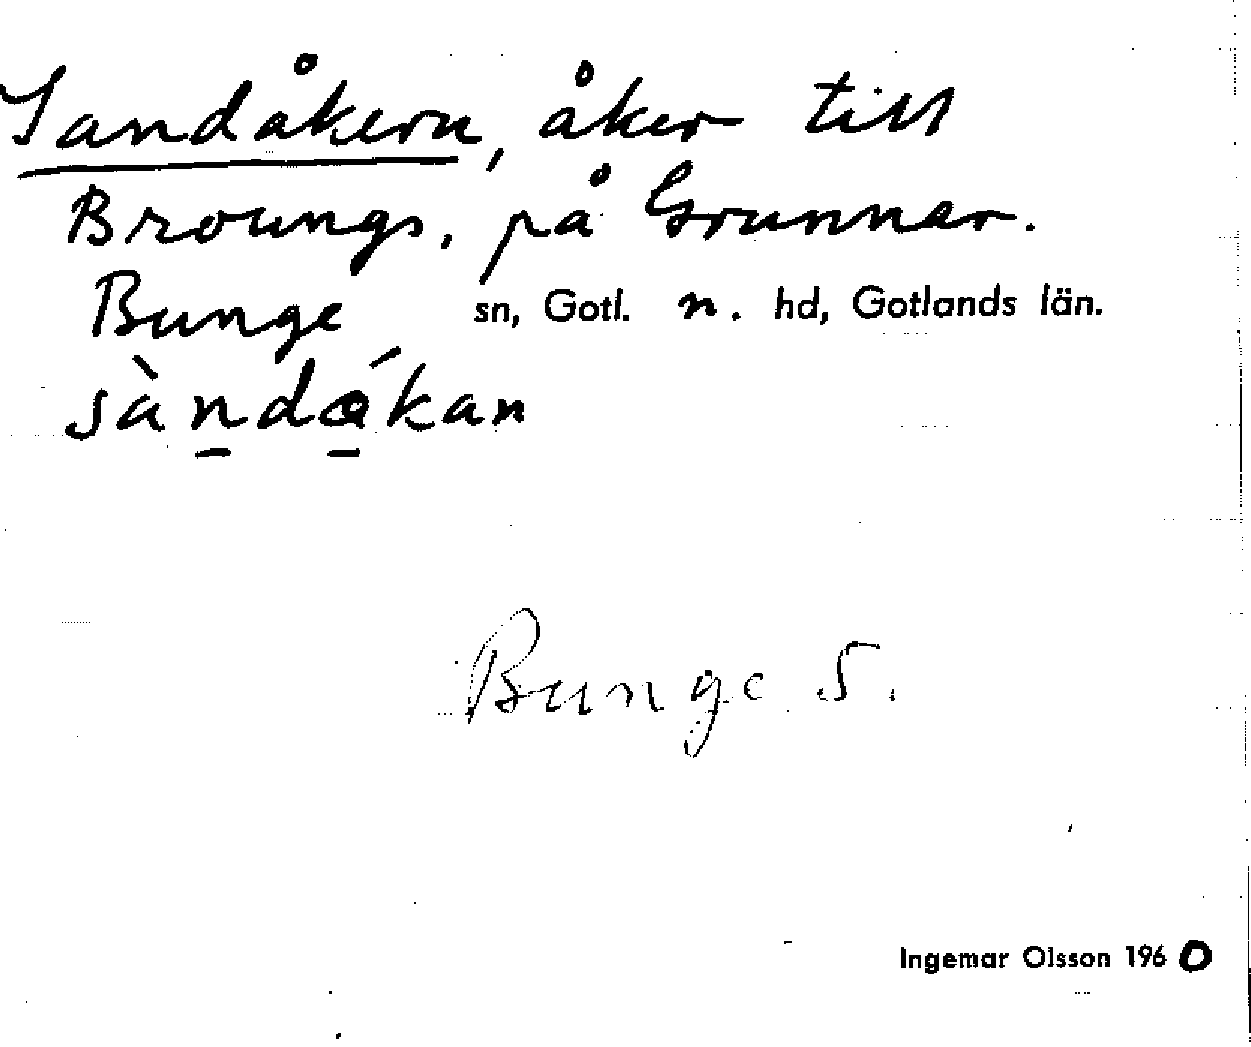 Sandåkern, åker till
Broungs, på Grunnar.
Bunge sn, Gotl. n. hd, Gotlands län.
sàndákan
Bunge S.
Ingemar Olsson 1960